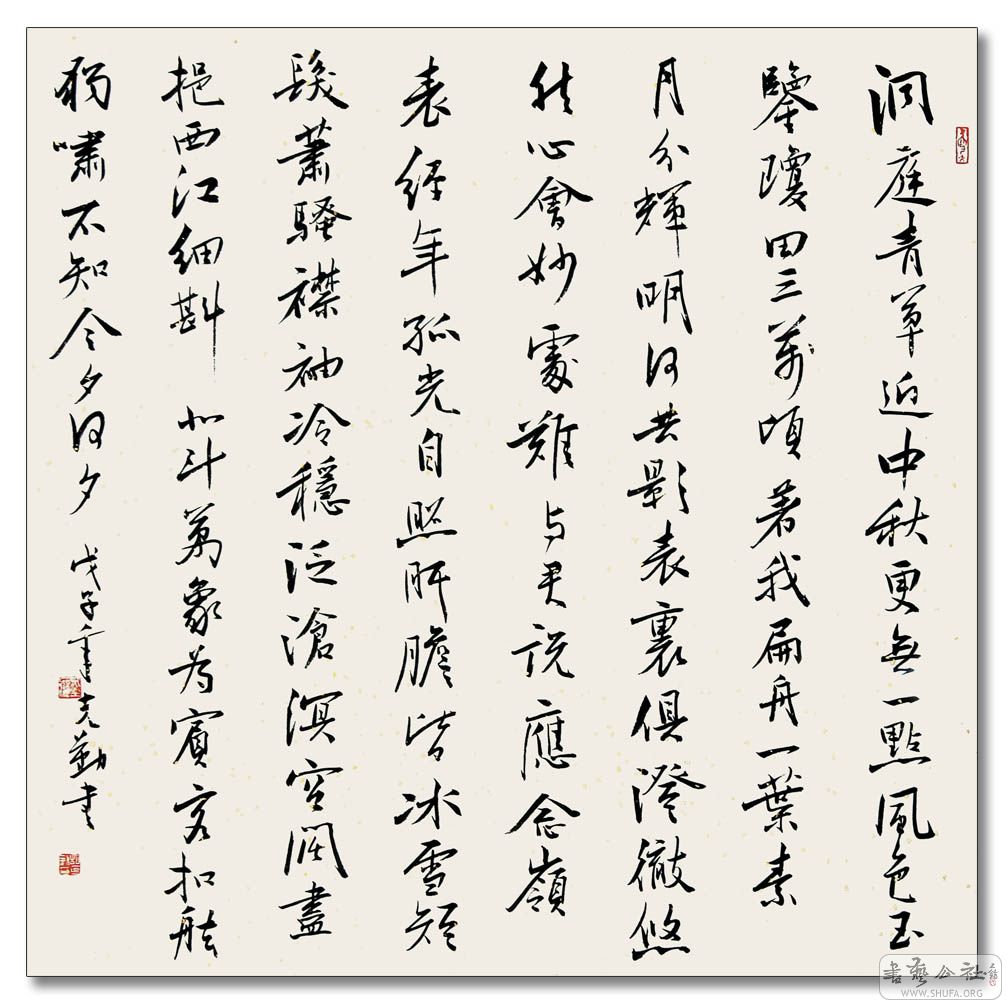 洞庭青草近中秋更無一點風色玉
鑒瓊田三萬頃著我扁舟一葉素
月分輝明河共影表裏俱澄徹悠
然心會妙處難与君説應念嶺
表經年孤光自照肝膽皆冰雪短
髮蕭騷襟袖冷穩泛滄溟空闊盡
挹西江細斟北斗萬象為賓客扣舷
獨嘯不知今夕何夕 戊子年克勤書
書藝公社
WWW.SHUFA.ORG